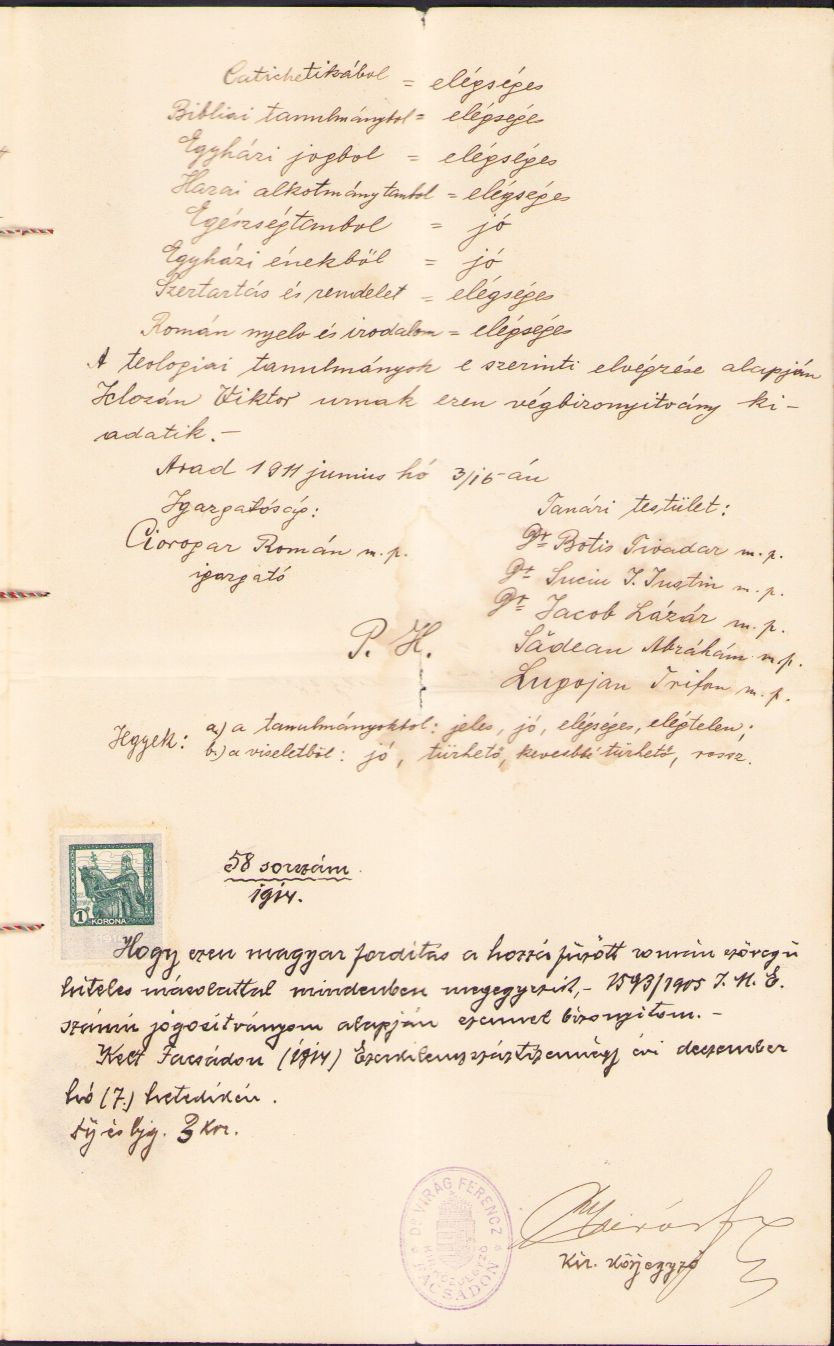 Catichetikából = elégséges
Bibliai tanulmánybol = elégséges
Egyházi jogbol = elégséges
Hazai alkotmánytanbol = elégséges
Egészségtanbol = jó
Egyházi énekből = jó
Szertartás és rendelet = elégséges
Román nyelv és irodalom = elégséges
A teologiai tanulmányok e szerinti elvégzése alapján
Klozán Viktor urnak ezen végbizonyitvány ki-
adatik.-
Arad 1911 junius hó 3/16-án
Igazgatóság:
Ciorogar Román m.p.
igazgató
Tanári testület:
Dr Botis Tivadar m.p.
Dr Suciu I. Justin m.p.
Dr Iacob Lázár m.p.
Sădean Abráhám m.p.
Lugojan Trifon m.p.
P. H.
Jegyek: a.) a tanulmányokbol: jeles, jó, elégséges, elégtelen;
b.) a viseletből: jó, türhető, kevesbbé türhető, rossz.
1 KORONA
58 sorszám
1914.
Hogy ezen magyar forditás a hozzá füzött román szövegü
hiteles másolattal mindenben megegyezik,- 1593/1905 I. M. E.
számú jogositványom alapján ezennel bizonyitom.-
Kelt Facsádon (1914) Ezerkilencszáztizennégy évi december
hó (7.) hetedikén.
Dij és bjg. 3 Kor.
Dr. VIRÁG FERENCZ
KIR. KÖZJEGYZŐ
FACSÁDON
Kir. közjegyző